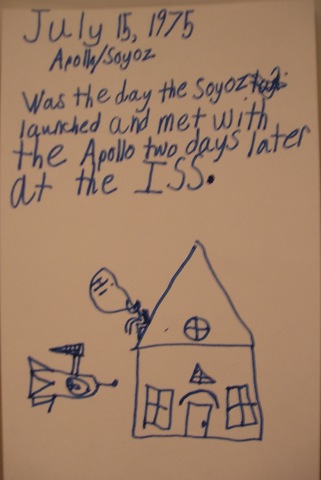 July 15, 1975
Apollo/Soyoz
Was the day the Soyoz
launched and met with
the Apollo two days later
at the ISS.